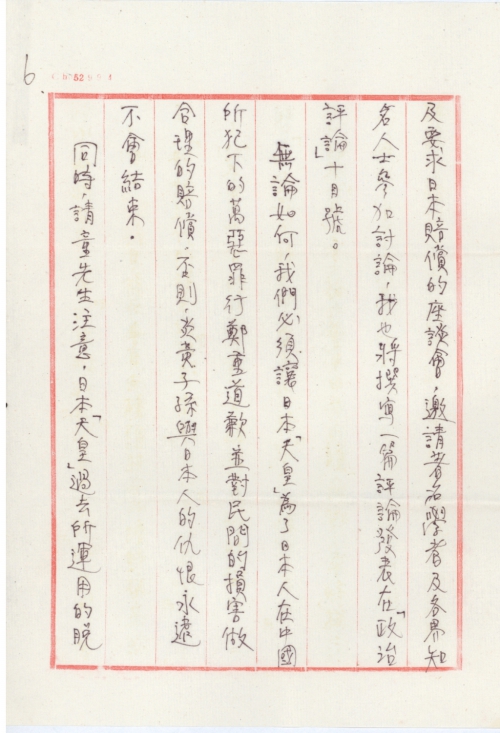 6.
52
及要求日本賠償的座談會，邀請著名學者及各界知
名人士參加討論，我也將撰寫一篇評論發表在「政治
評論」十月號。
無論如何，我們必須讓日本「天皇」為了日本人在中國
所犯下的萬惡罪行鄭重道歉並對民間的損害做
合理的賠償，否則，炎黃子孫與日本人的仇恨永遠
不會結束。
同時，請童先生注意，日本「天皇」過去所運用的脫